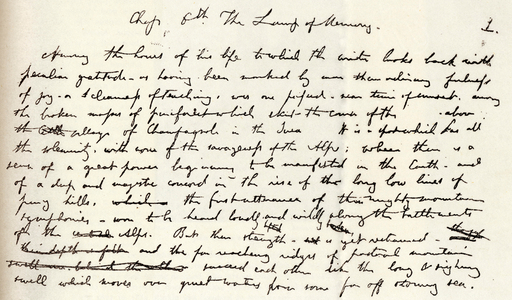 Chap. 6th. The Lamp of Memory. 1.
Among the hours of his life to which the writer looks back with
peculiar gratitude - as having been marked by more than ordinary fulness
of joy - or clearness of teaching, was one passed - near time of sunset, among
the broken masses of pine forest which skirt the course of the above
the village of Champagnole in the Jura It is a spot which has all
the solemnity, with none of the savageness of the Alps; where there is a
sense of a great power beginning to be manifested in the earth - and
of a deep and majestic concord in the rise of the long low lines of
piny hills; the first utterance of those mighty mountain
symphonies - soon to be heard loudly and wildly along the battlements
of the Alps. But their strength is yet restrained -
and the far reaching ridges of pastoral mountain
succeed each other like the long & sighing
swell which moves over great waters from some far off stormy sea.